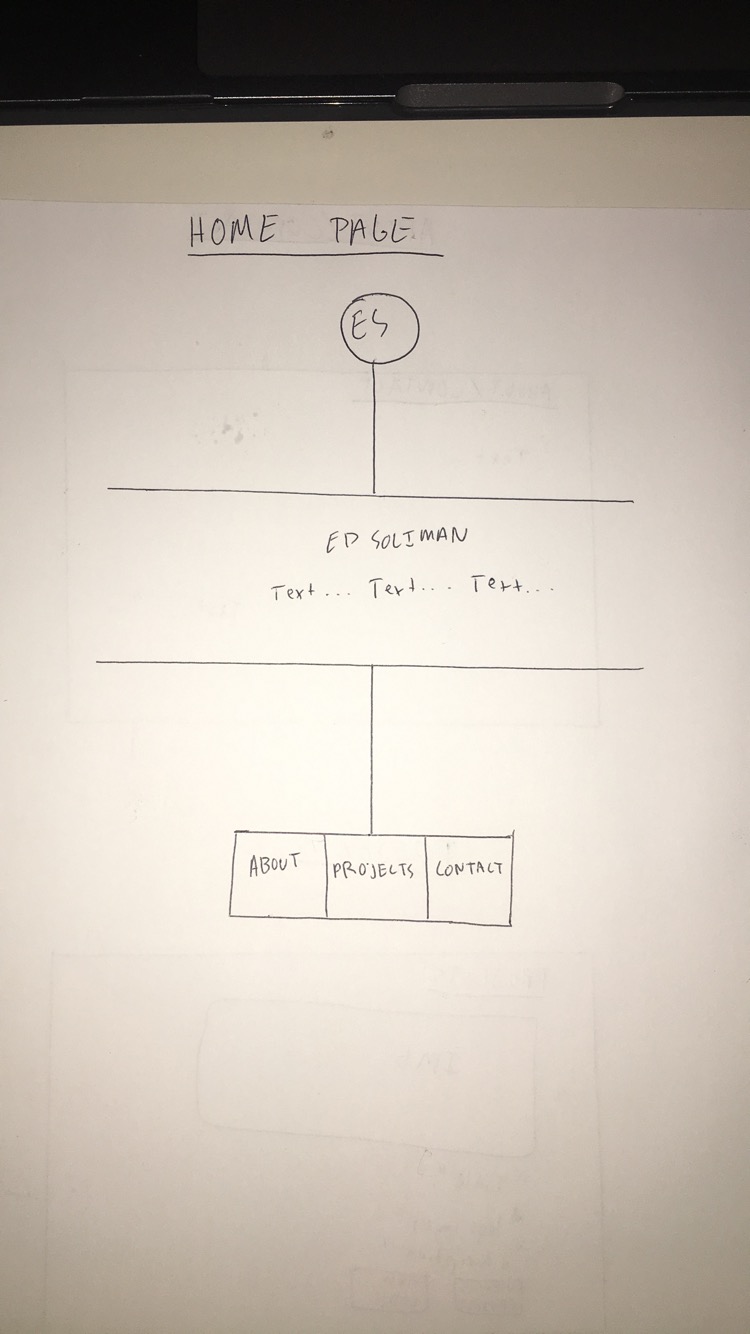 HOME PAGE
ES
ED SOLIMAN
Text... Text... Text...
ABOUT PROJECTS CONTACT